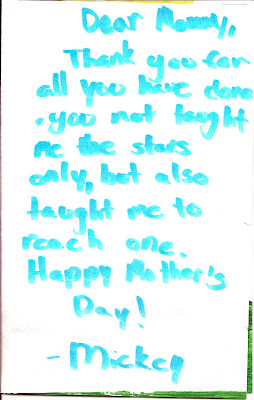 Dear Mommy,
Thank you for
all you have done
. you not taught
me the stars
only, but also
taught me to
reach one.
Happy Mother's
Day!
- Mickey